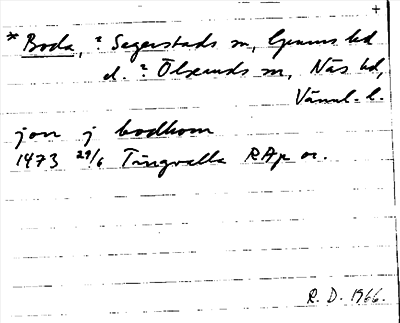 +
* Boda, ? Segerstads sn, Grums hd
el. ? Ölseruds sn, Näs hd,
Värml. l.
jon j bodhom
1473 29/6 Tingvalla RAp or.
R. D. 1966.